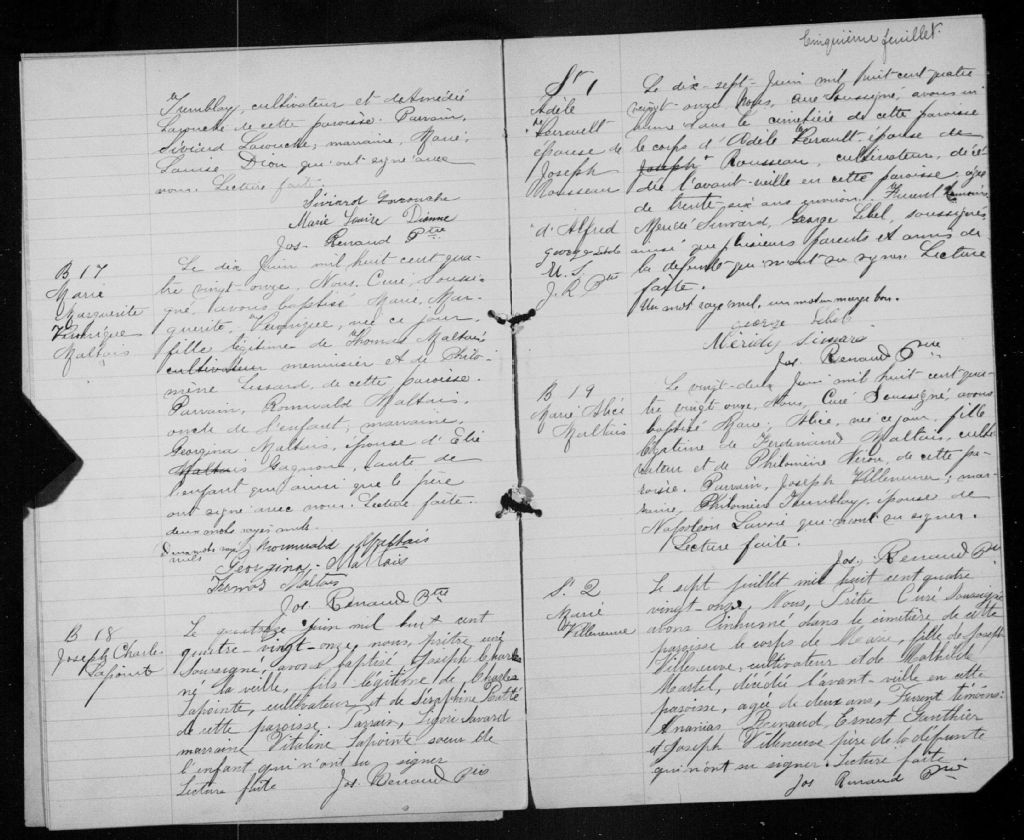 Tremblay, cultivateur et de Amédée
Larouche de cette paroisse. Parrain,
Sévérard Larouche; marraine, Marie
Louise Dion qui ont signé avec
nous. Lecture faite.
Larouche
Marie Louise Dionne
Jos. Renaud Ptre
B 17
Marie
Marguerite
Maltais
Le dix Juin mil huit cent qua-
tre vingt-onze, Nous, Curé, Soussi-
gné, avons baptisé Marie, Mar-
guerite, née ce jour,
fille légitime de Thomas Maltais
cultivateur menuisier et de Philo-
mène de cette paroisse.
Parrain, Romuald Maltais,
oncle de l'enfant; marraine,
Georgina Maltais, épouse d'Elie
Maltais Gagnon, tante de
l'enfant qui ainsi que le père
ont signé avec nous. Lecture faite.
deux mots rayés nuls.
Deux mots rayés nuls
Romuald Maltais
Georgina Maltais
Thomas Maltais
Jos. Renaud Ptre
B 18
Joseph Charles
Lapointe
Le quatorze juin mil huit cent
quatre-vingt-onze, nous, prêtre curé
Soussigné, avons baptisé, Joseph Charles
né la veille, fils légitime de Charles
Lapointe, cultivateur et de Séraphine
de cette paroisse. Parrain, Ligori Savard
marraine Vitaline Lapointe soeur de
l'enfant qui n'ont su signer
Lecture faite Jos. Renaud Ptre
Cinquième feuillet.
S. 1
Adèle
Perrault
épouse de
Joseph
Rousseau
d'Alfred
George Lebel
M. S.
J. R Ptre
Le dix-sept Juin mil huit cent quatre
vingt-onze, Nous, Curé Soussigné, avons in-
humé dans le cimetière de cette paroisse
le corps d'Adèle Perrault, épouse de
Joseph Rousseau, cultivateur, décé-
dée l'avant-veille en cette paroisse, agée
de trente six ans environ. Furent témoins,
Simard, George Lebel, soussignés,
ainsi que plusieurs parents et amis de
la défunte qui n'ont su signer. Lecture
faite.
Un mot rayé nul, un mot en marge bon.
George Lebel
Simard
Jos. Renaud Ptre
B 19
Marie Alice
Maltais
Le vingt-deux Juin mil huit cent qua-
tre vingt onze, Nous, Curé Soussigné, avons
baptisé Marie, Alice, née ce jour, fille
légitime de Ferdinand Maltais, culti-
vateur et de Philomène Néron, de cette pa-
roisse. Parrain, Joseph Villeneuve; mar-
raine, Philomène Tremblay, épouse de
Napoléon Lavoie qui n'ont su signer.
Lecture faite.
Jos. Renaud Ptre
S. 2
Marie
Villeneuve
Le sept juillet mil huit cent quatre
vingt-onze, Nous, Prêtre Curé soussigné
avons inhumé dans le cimetière de cette
paroisse le corps de Marie, fille de Joseph
Villeneuve, cultivateur et de Mathilde
Martel, décédée l'avant-veille en cette
paroisse, agée de deux ans, Furent témoins:
Ananias Renaud, Ernest Gauthier
et Joseph Villeneuve père de la défunte
qui n'ont su signer. Lecture faite.
Jos Renaud Ptre